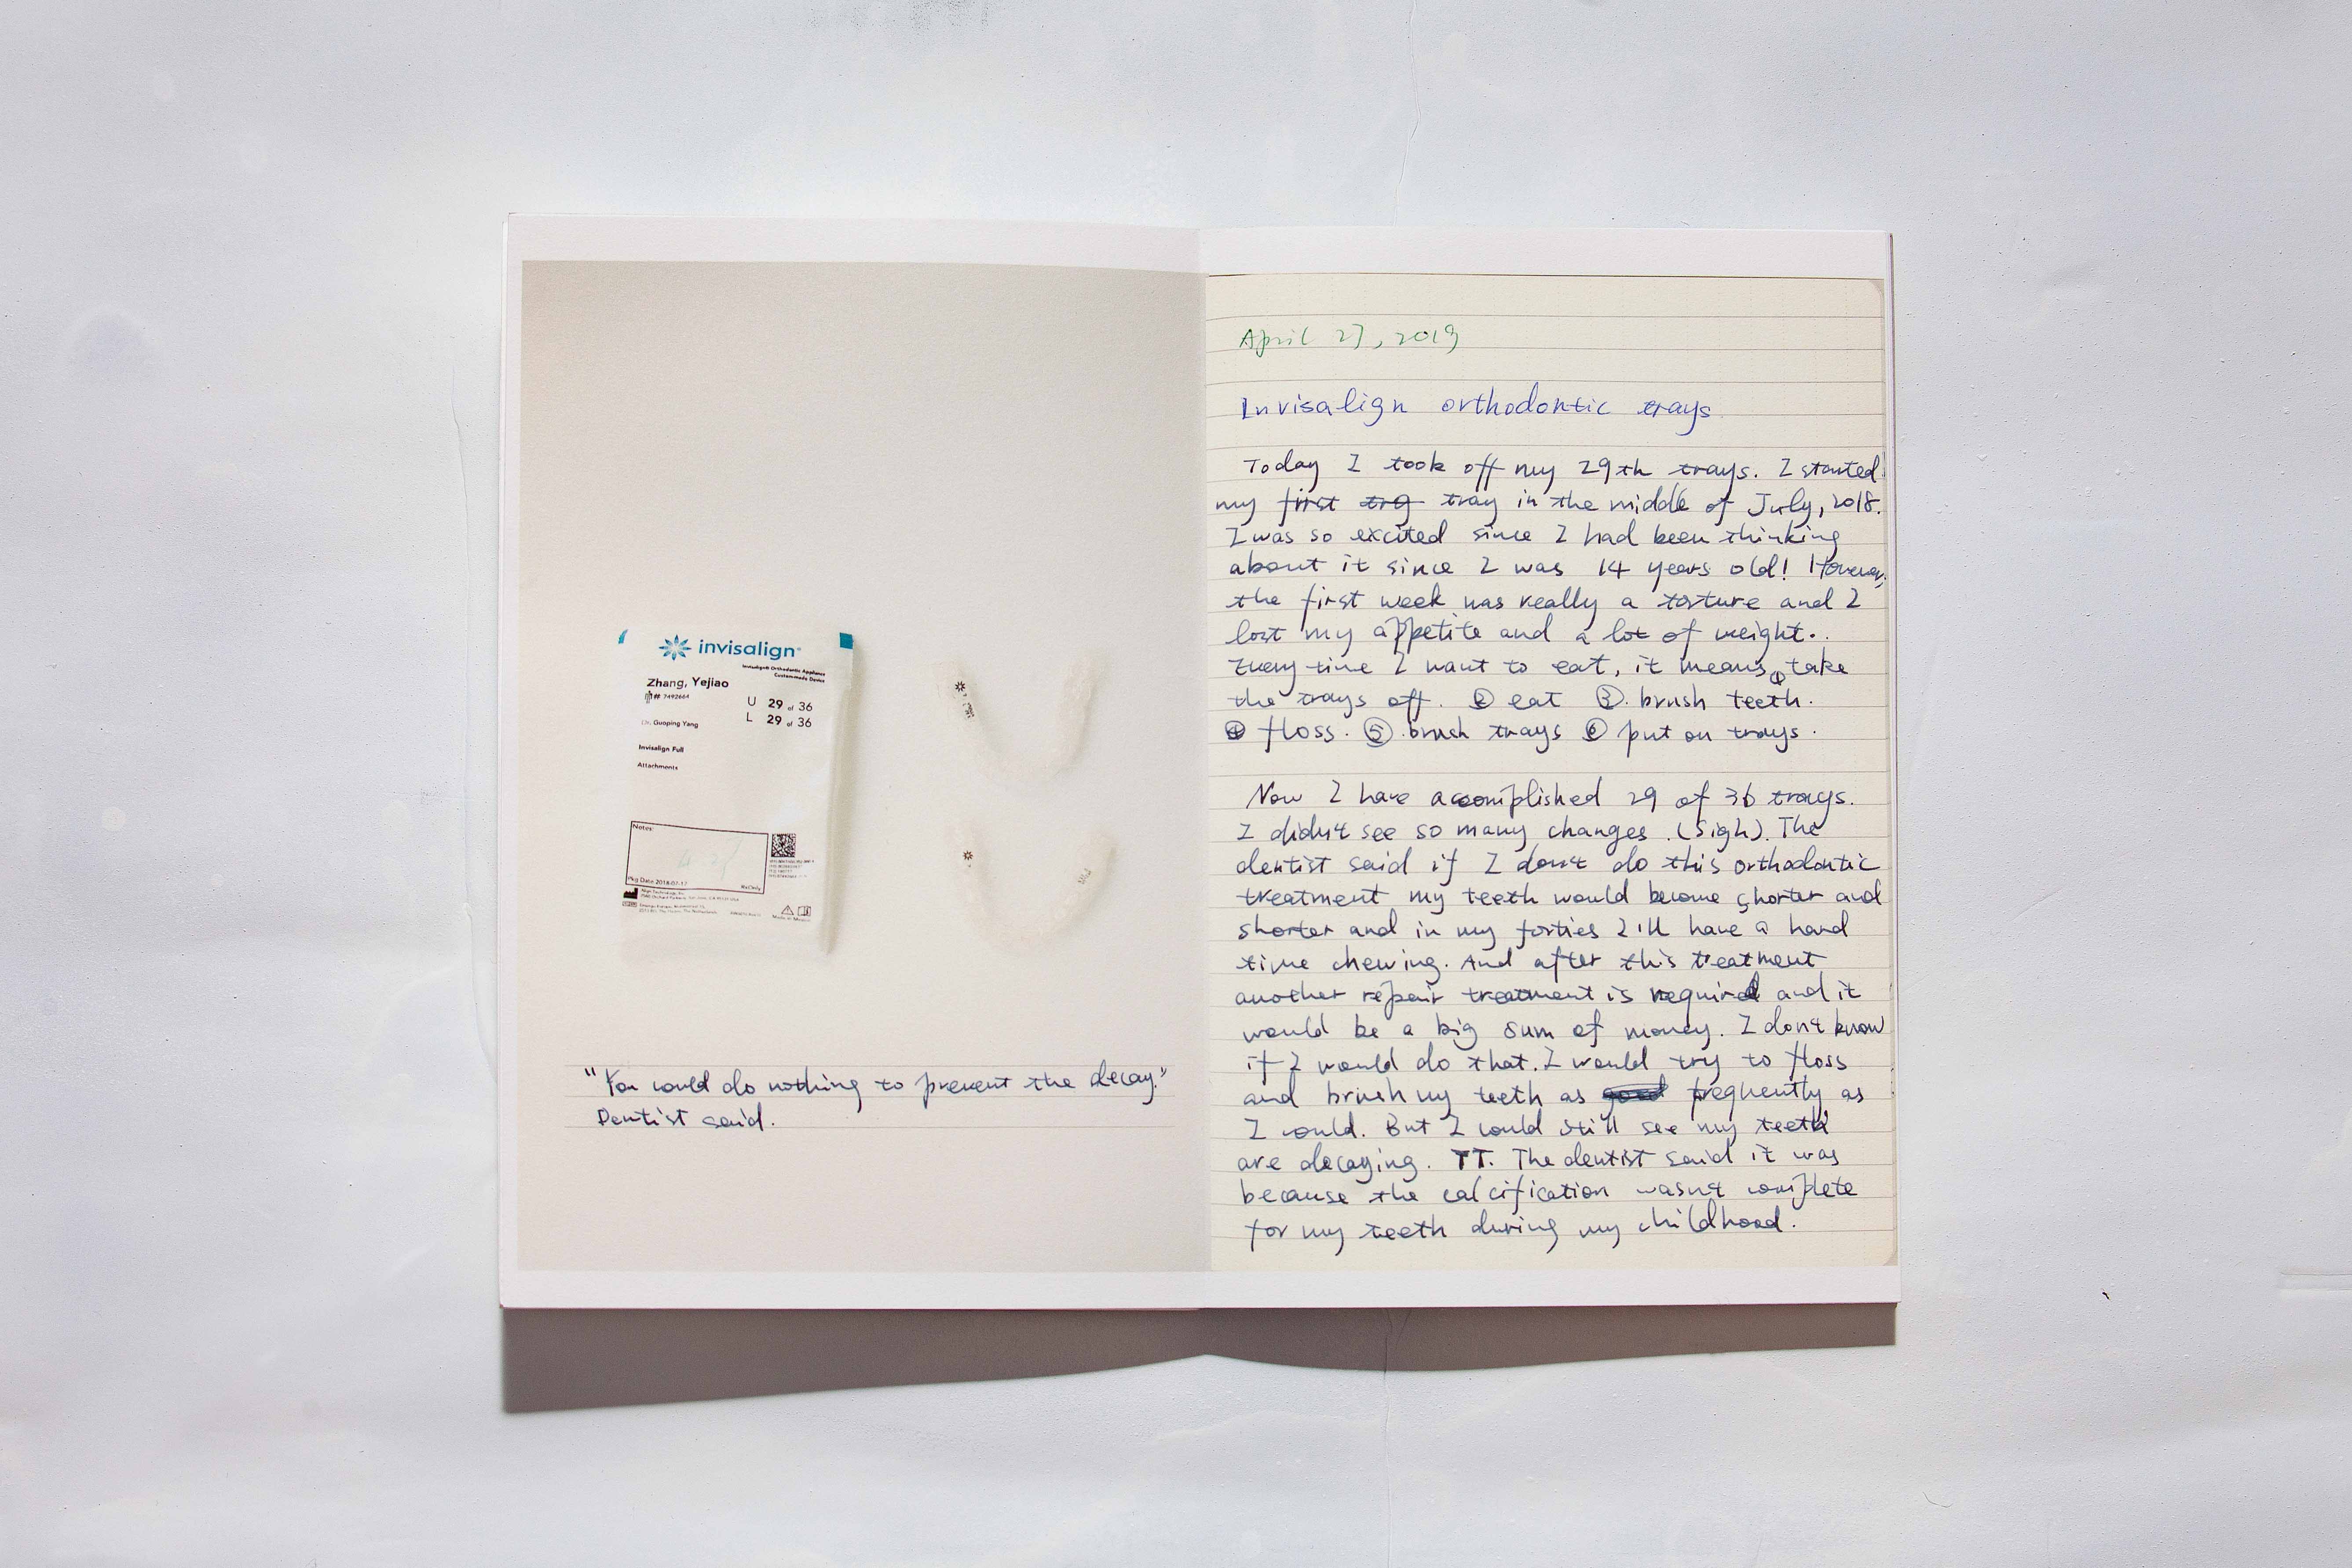 invisalign
Invisalign® Orthodontic Appliance
Custom-made Device
Zhang, Yejiao
U 29 of 36
L 29 of 36
Dr. Guoping Yang
Invisalign Full
Attachments
Notes:
Pkg Date 2018-07-17
Rx Only
Made in Mexico
"You could do nothing to prevent the decay."
Dentist said.
April 27, 2019
Invisalign orthodontic trays
Today I took off my 29th trays. I started
my first tray in the middle of July, 2018.
I was so excited since I had been thinking
about it since I was 14 years old! However,
the first week was really a torture and I
lost my appetite and a lot of weight.
Every time I want to eat, it means ① take
the trays off. ② eat ③. brush teeth.
④ floss. ⑤. brush trays ⑥ put on trays.
Now I have accomplished 29 of 36 trays.
I didn't see so many changes. (Sigh). The
dentist said if I don't do this orthodontic
treatment my teeth would become shorter and
shorter and in my forties I'll have a hard
time chewing. And after this treatment
another repair treatment is required and it
would be a big sum of money. I don't know
if I would do that. I would try to floss
and brush my teeth as frequently as
I could. But I could still see my teeth
are decaying. TT. The dentist said it was
because the calcification wasn't complete
for my teeth during my childhood.